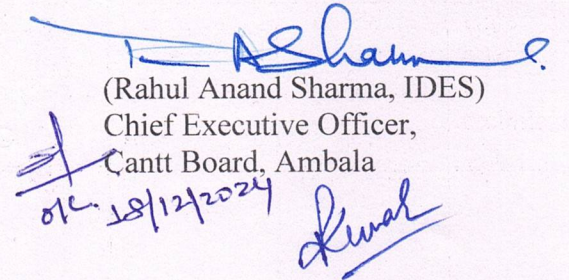 (Rahul Anand Sharma, IDES)
Chief Executive Officer,
Cantt Board, Ambala
18/12/2024